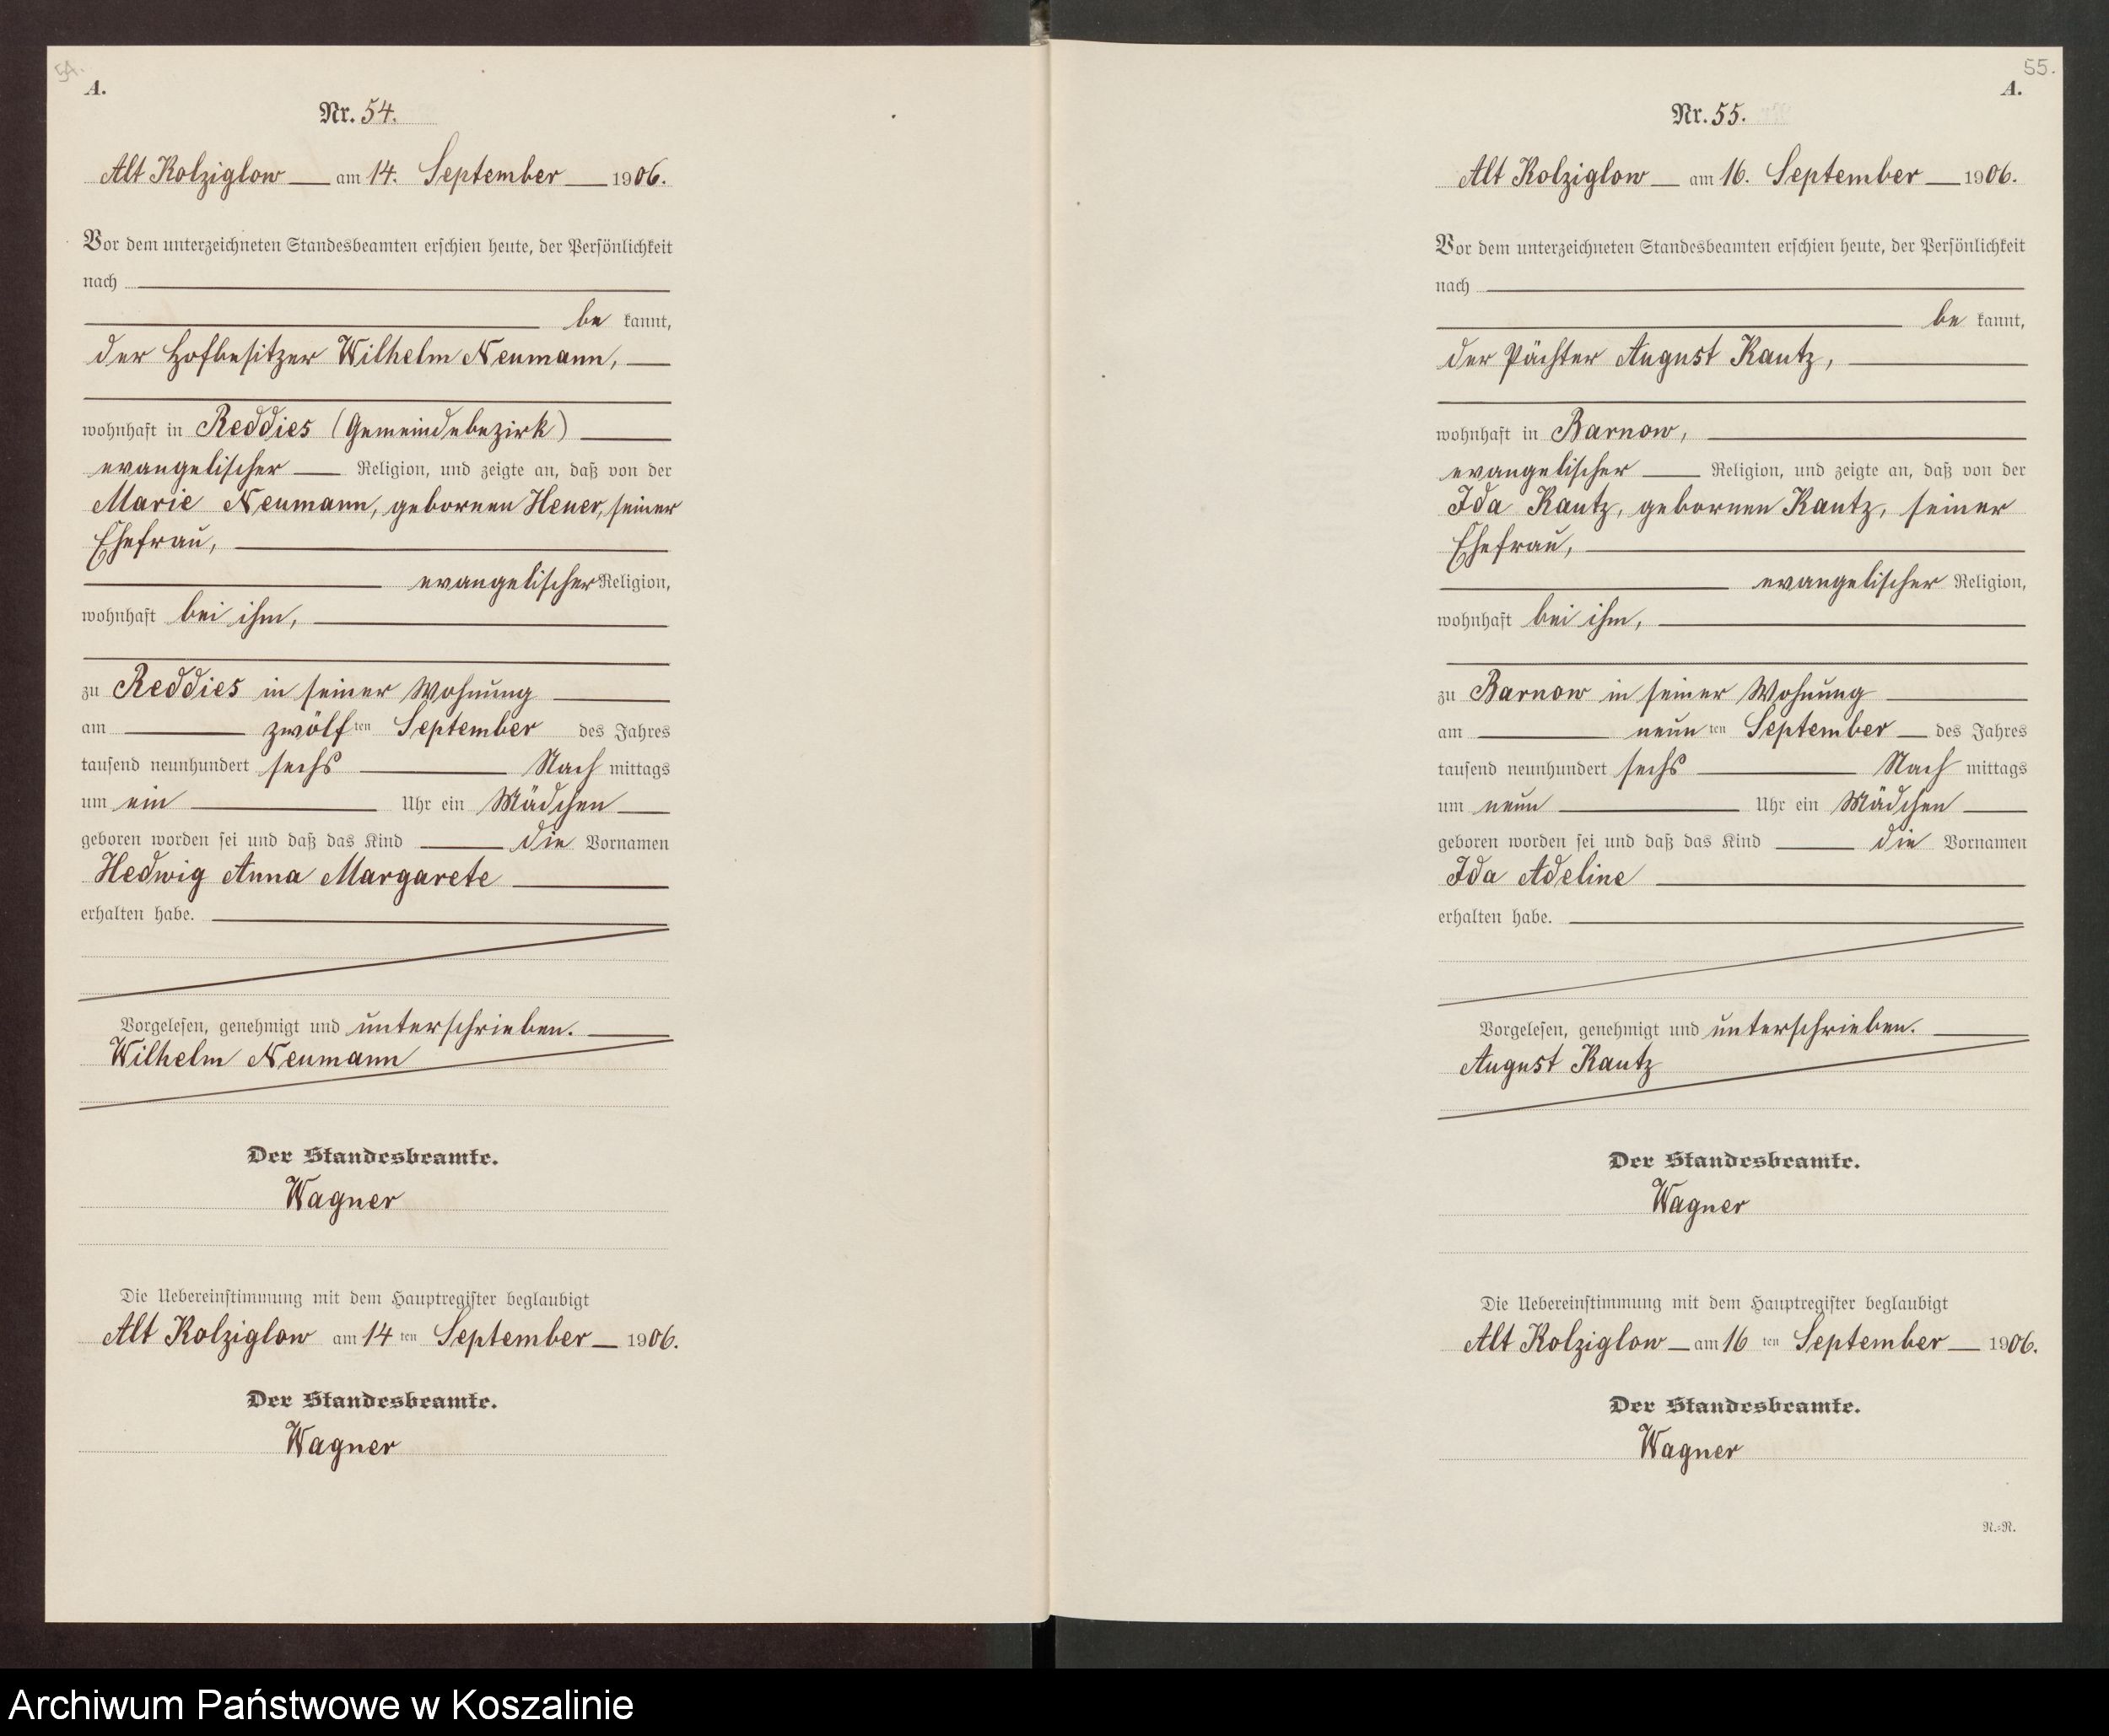 54.
A.
Nr. 54.
Alt Kolziglow am 14. September 1906.
Vor dem unterzeichneten Standesbeamten erschien heute, der Persönlichkeit
nach
be kannt,
der Hofbesitzer Wilhelm Neumann,
wohnhaft in Reddies (Gemeindebezirk)
evangelischer Religion, und zeigte an, daß von der
Marie Neumann, gebornen Heuer, seiner
Ehefrau,
evangelischer Religion,
wohnhaft bei ihm,
zu Reddies in seiner Wohnung
am zwölf ten September des Jahres
tausend neunhundert sechs Nach mittags
um ein Uhr ein Mädchen
geboren worden sei und daß das Kind die Vornamen
Hedwig Anna Margarete
erhalten habe.
Vorgelesen, genehmigt und unterschrieben.
Wilhelm Neumann
Der Standesbeamte.
Wagner
Die Uebereinstimmung mit dem Hauptregister beglaubigt
Alt Kolziglow am 14 ten September 1906.
Der Standesbeamte.
Wagner
55.
A.
Nr. 55.
Alt Kolziglow am 16. September 1906.
Vor dem unterzeichneten Standesbeamten erschien heute, der Persönlichkeit
nach
be kannt,
der Pächter August Kautz,
wohnhaft in Barnow,
evangelischer Religion, und zeigte an, daß von der
Ida Kautz, gebornen Kautz, seiner
Ehefrau,
evangelischer Religion,
wohnhaft bei ihm,
zu Barnow in seiner Wohnung
am neun ten September des Jahres
tausend neunhundert sechs Nach mittags
um neun Uhr ein Mädchen
geboren worden sei und daß das Kind die Vornamen
Ida Adeline
erhalten habe.
Vorgelesen, genehmigt und unterschrieben.
August Kautz
Der Standesbeamte.
Wagner
Die Uebereinstimmung mit dem Hauptregister beglaubigt
Alt Kolziglow am 16 ten September 1906.
Der Standesbeamte.
Wagner
R.=R.
Archiwum Państwowe w Koszalinie